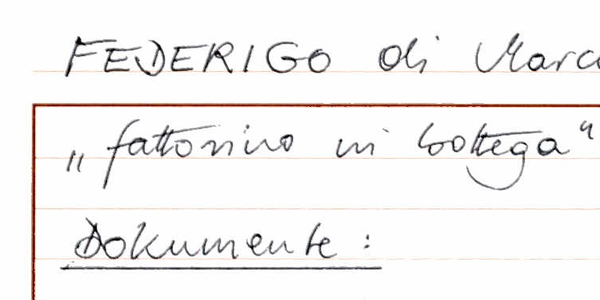 FEDERIGO di Marc
„fattorino in bottega“
Dokumente: